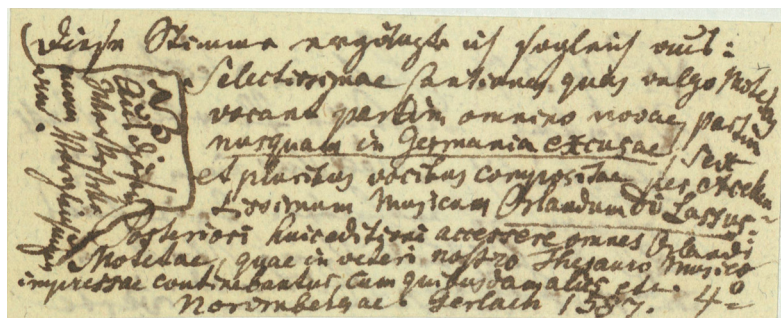 (Diese Stimme ergänzte ich sogleich aus:
Selectissimae Cantiones quas vulgo Motetas
vocant partim omnino novae partim
nusquam in Germania excusae, Sex
et pluribus vocibus compositae per excellen-
tissimum Musicum Orlandum di Lassus.
Posteriori huic editioni accessere omnes Orlandi
Motetae, quae in veteri nostro Thesauro Musico
impressae continebantur, cum quibusdam aliis etc.
Norimbergae Gerlach 1587. 4º
NB
Auf diesen